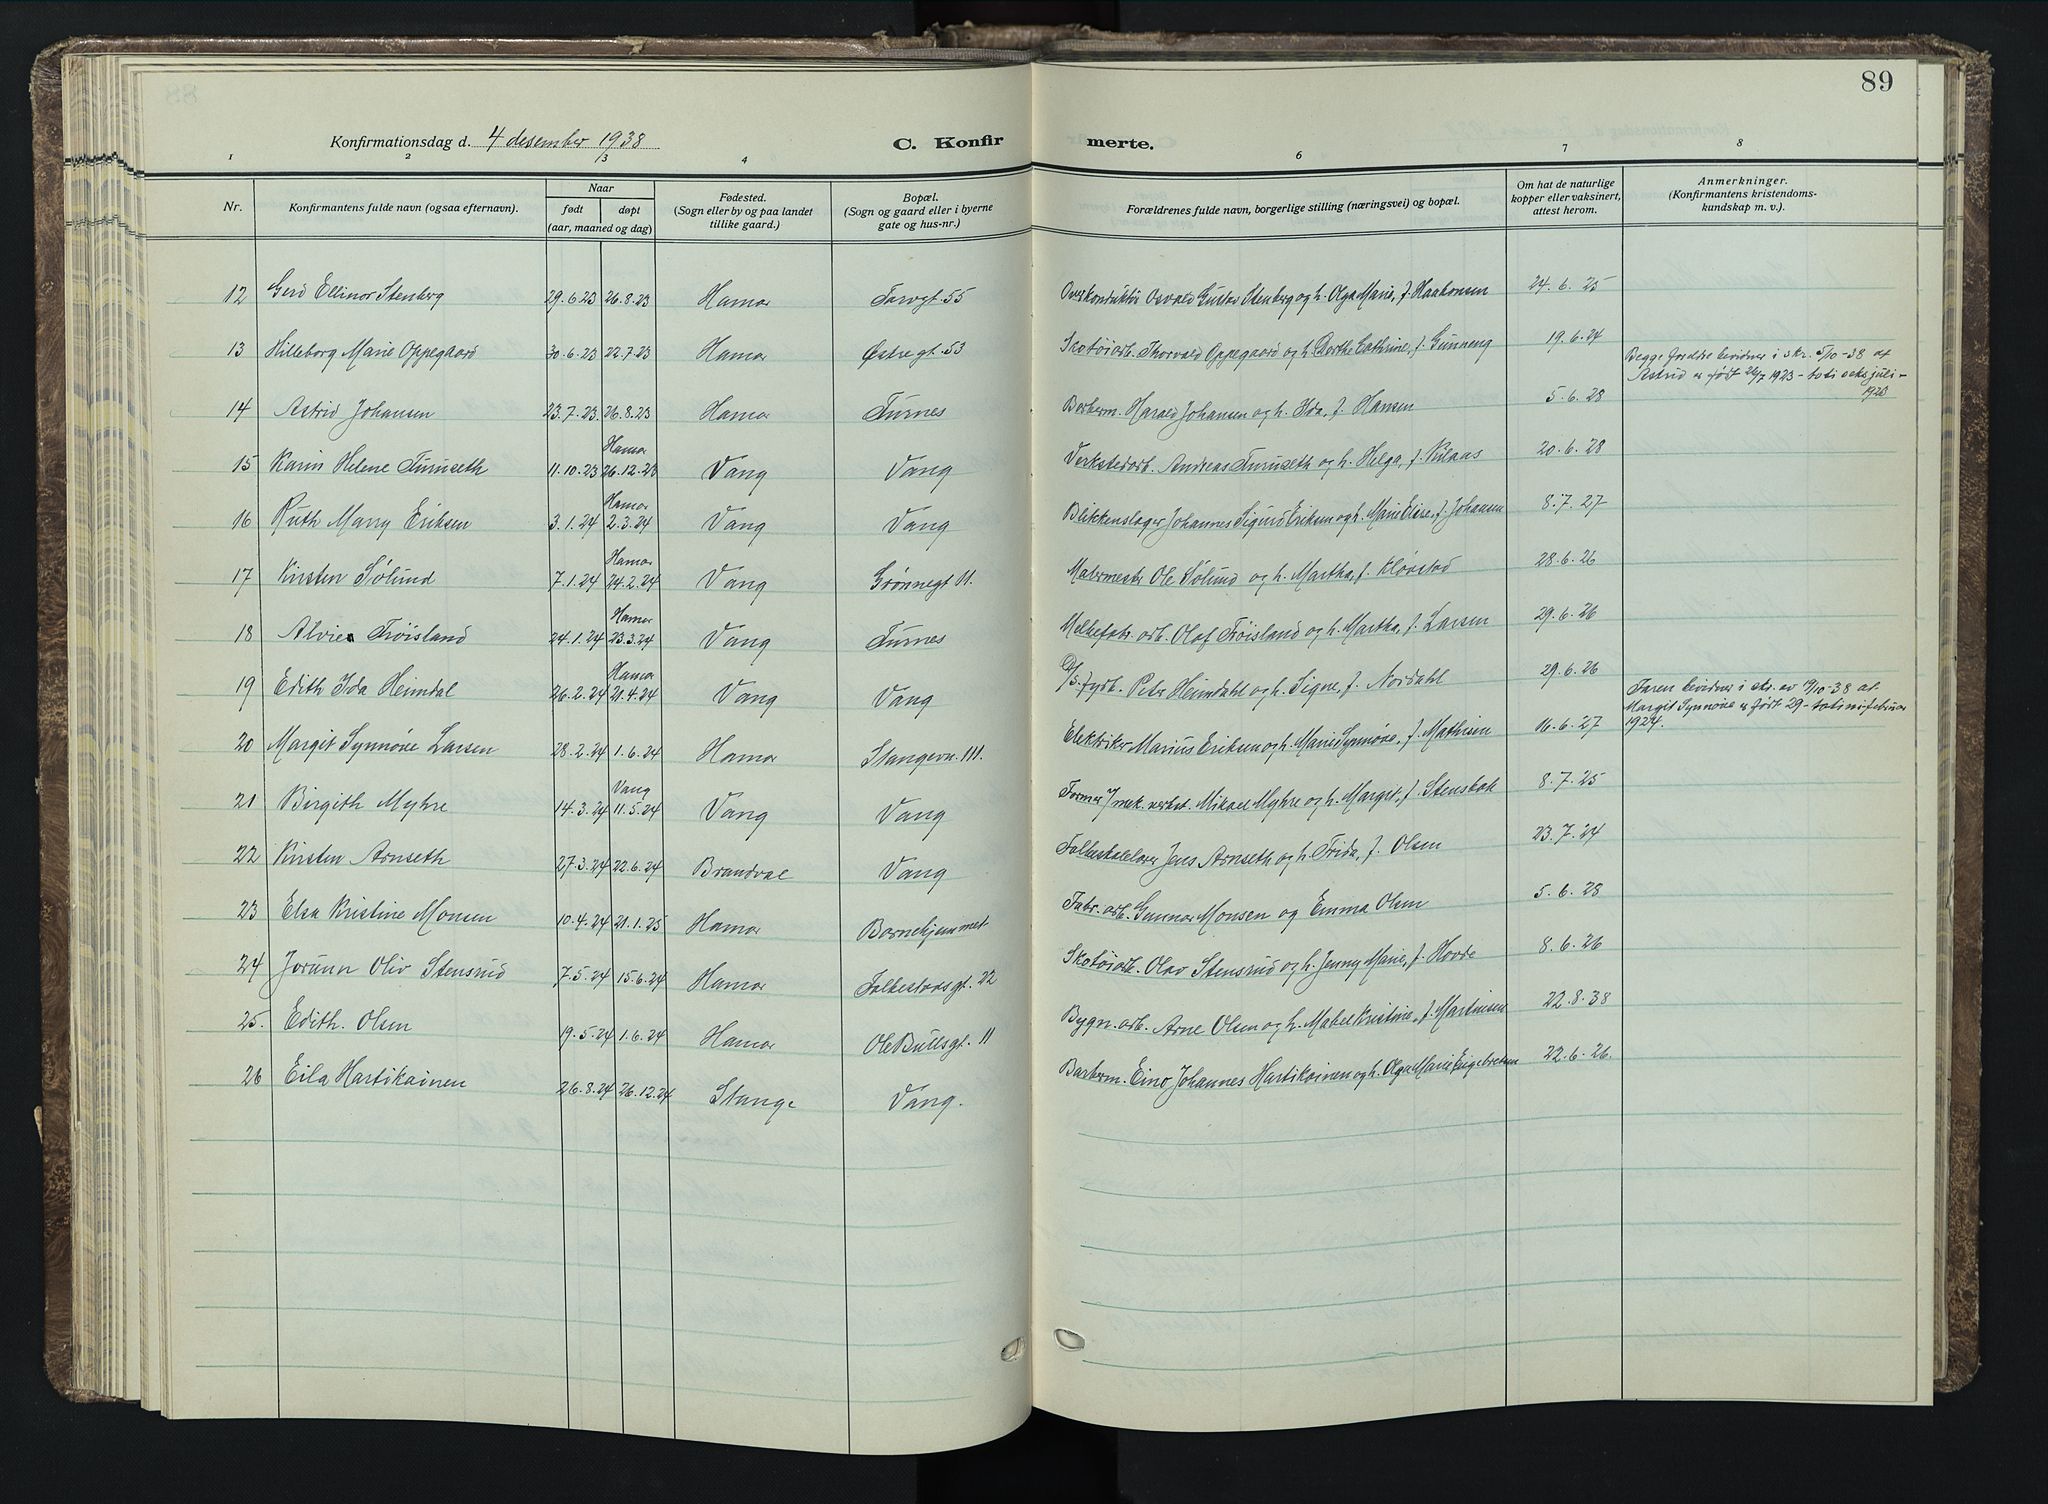 89
Konfirmationsdag d. 4 desember 1938
C. Konfirmerte.
1 2 3 4 6 7 8
Nr.
Konfirmantens fulde navn (ogsaa efternavn).
Naar
født døpt
(aar, maaned og dag)
Fødested.
(Sogn eller by og paa landet
tillike gaard.)
Bopæl.
(Sogn og gaard eller i byerne
gate og hus-nr.)
Forældrenes fulde navn, borgerlige stilling (næringsvei) og bopæl.
Om hat de naturlige
kopper eller vaksinert,
attest herom.
Anmerkninger.
(Konfirmantens kristendoms-
kundskap m. v.).
12 Gerd Ellinor Stenberg 29.6.23 26.8.23 Hamar Torvgt. 55 Overkonduktør Osvald Gustav Stenberg og h. Olga Marie, f. Haakonsen 24.6.25
13 Hilleborg Marie Oppegaard 30.6.23 22.7.23 Hamar Østregt. 53 Skotøiarb. Thorvald Oppegaard og h. Dorthe Cathrine, f. Gunneng 19.6.24
Begge foreldre bevidner i skr. 5/10-38 at
Astrid er født 26/7 1923 - toti seks juli -
1923
14 Astrid Johansen 23.7.23 26.8.23 Hamar Furnes Harald Johansen og h. Ida, f. Hansen 5.6.28
15 Karin Helene Furuseth 11.10.23 Hamar 26.12.23 Vang Vang Verkstedarb. Andreas Furuseth og h. Helga, f. Kilaas 20.6.28
16 Ruth Marry Eriksen 3.1.24 Hamar 2.3.24 Vang Vang Blikkenslager Johannes Sigurd Eriksen og h. Marie Elise, f. Johansen 8.7.27
17 Kirsten Sølund 7.1.24 Hamar 24.2.24 Vang Grønnegt 11. Malermestr. Ole Sølund og h. Martha, f. Kløvstad 28.6.26
18 Trøisland 24.1.24 Hamar 23.3.24 Vang Furnes Melkefabr. arb. Olaf Trøisland og h. Martha, f. Larsen 29.6.26
19 Edith Ida Heimdal 26.2.24 Hamar 21.4.24 Vang Vang D/S. fyrb. Peter Heimdahl og h. Signe, f. Nordahl 29.6.26
Faren bevidner i skr. av 19/10-38 at
Margit Synnøve er født 29 - totini februar
1924.
20 Margit Synnøve Larsen 28.2.24 1.6.24 Hamar Stangevn. 111. Elektriker Marius Eriksen og h. Marie Synnøve, f. Mathisen 16.6.27
21 Birgith Myhre 14.3.24 Vang 11.5.24 Vang Vang Former v/ mek. verkst. Mikael Myhre og h. Margit, f. Stensbak 8.7.25
22 Kirsten Arnseth 27.3.24 22.6.24 Brandval Vang Folkeskolelærer Jens Arnseth og h. Frida, f. Olsen 23.7.24
23 Elsa Kristine Monsen 10.4.24 21.1.25 Hamar Barnehjemmet Fabr. arb. Gunnar Monsen og Emma Olsen 5.6.28
24 Jorunn Oliv Stensrud 7.5.24 15.6.24 Hamar Folkestadsgt. 22 Skotøiarb. Olav Stensrud og h. Jenny Marie, f. Hovde 8.6.26
25. Edith Olsen 19.5.24 1.6.24 Hamar Ole Bullsgt. 11 Bygn. arb. Arne Olsen og h. Mabel Kristine, f. Martinsen 22.8.38
26 Eila Hartikainen 26.8.24 26.12.24 Stange Vang. Barberm. Eino Johannes Hartikainen og h. Olga Marie Engebretsen 22.6.26.